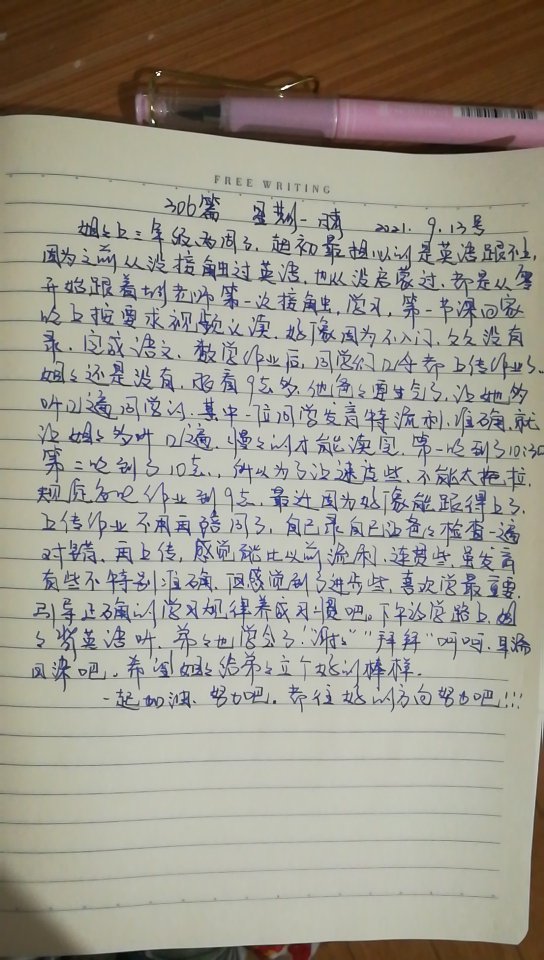 FREE WRITING
306篇 星期一 晴 2021.9.13号
姐姐上三年级两周了,起初最担心的是英语跟不上,
因为之前从没接触过英语,也从没启蒙过,都是从零
开始跟着老师第一次接触,学习,第一节课回家
晚上按要求视频认读,好像因为不入门,久久没有
录,完成语文、数学作业后,同学们口令都上传作业了,
姐姐还是没有,眼看9点多,他爸爸要生气了,让她多
听几遍同学的,其中一位同学发音特流利,准确,就
让姐姐多听几遍,慢慢的才能读完,第一晚到了10:30
第二晚到了10点,所以为了让速度些,不能太拖拉,
规定每晚作业到9点,最近因为好像能跟得上了,
上传作业不用再陪同了,自己录自己让爸爸检查一遍
对错,再上传,感觉能比以前流利,连贯些,虽发音
有些不特别准确,但感觉到了进步些,喜欢学最重要,
引导正确的学习规律养成习惯吧。下午放学路上,姐
姐背英语听,弟弟也学会了“谢谢”“拜拜”呵呵,耳濡
目染吧,希望姐姐给弟弟立个好的榜样,
一起加油,努力吧,都往好的方向努力吧!!!